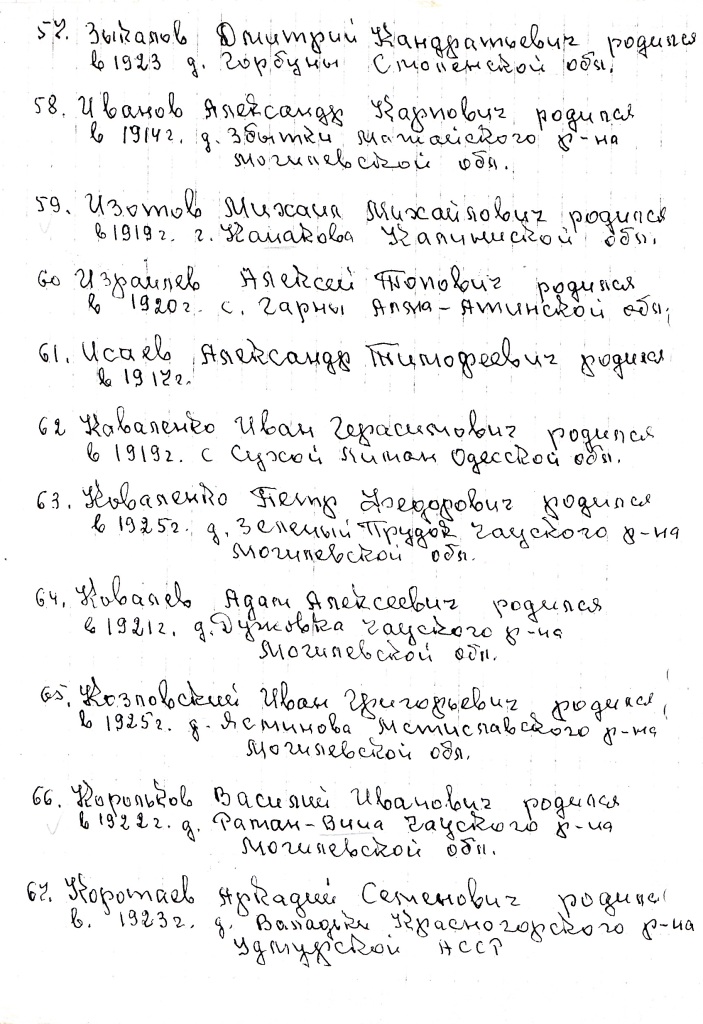 57. Зыкалов Дмитрий Кандратьевич родился
в 1923 д. Горбуны Смоленской обл.
58. Иванов Александр Карпович родился
в 1914г. д. Збытки Матайского р-на
Могилевской обл.
59. Изотов Михаил Михайлович родился
в 1919г. г. Калакова Калининской обл.
60 Израилев Алексей Попович родился
в 1920г. с. Чарны Алма-Атинской обл.
61. Исаев Александр Тимофеевич родился
в 1917г.
62 Каваленко Иван Герасимович родился
в 1919г. с Сухой Лиман Одесской обл.
63. Коваленко Петр Федорович родился
в 1925г. д. Зеленый Прудок Чауского р-на
Могилевской обл.
64. Ковалев Адам Алексеевич родился
в 1921г. д. Дужовка Чауского р-на
Могилевской обл.
65. Козловский Иван Григорьевич родился
в 1925г. д. Ястинова Мстиславского р-на
Могилевской обл.
66. Корольков Василий Иванович родился
в 1922г. д. Ратан-Вила Чауского р-на
Могилевской обл.
67. Коротаев Аркадий Семенович родился
в. 1923г. д. Валадки Красногорского р-на
Удмурской АССР